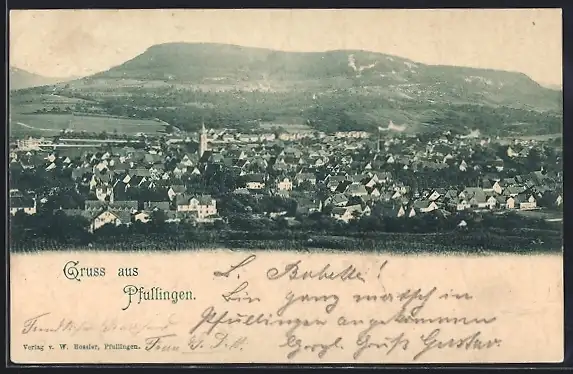 Gruss aus
Pfullingen.
L. Babette!
Bin ganz matsch in
Pfullingen angekommen
Herzl. Gruß Gustav.
Verlag v. W. Hossler, Pfullingen.